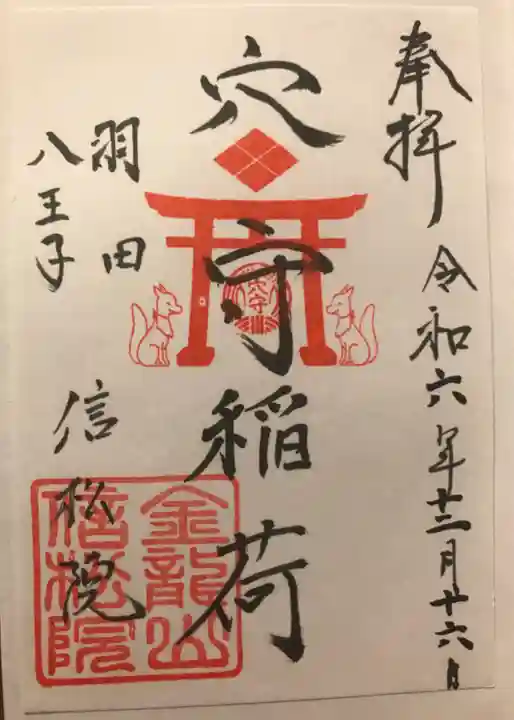 奉拝
令和六年十二月廿六日
穴守稲荷
穴守
羽田
八王子
信松院
金龍山
信松院